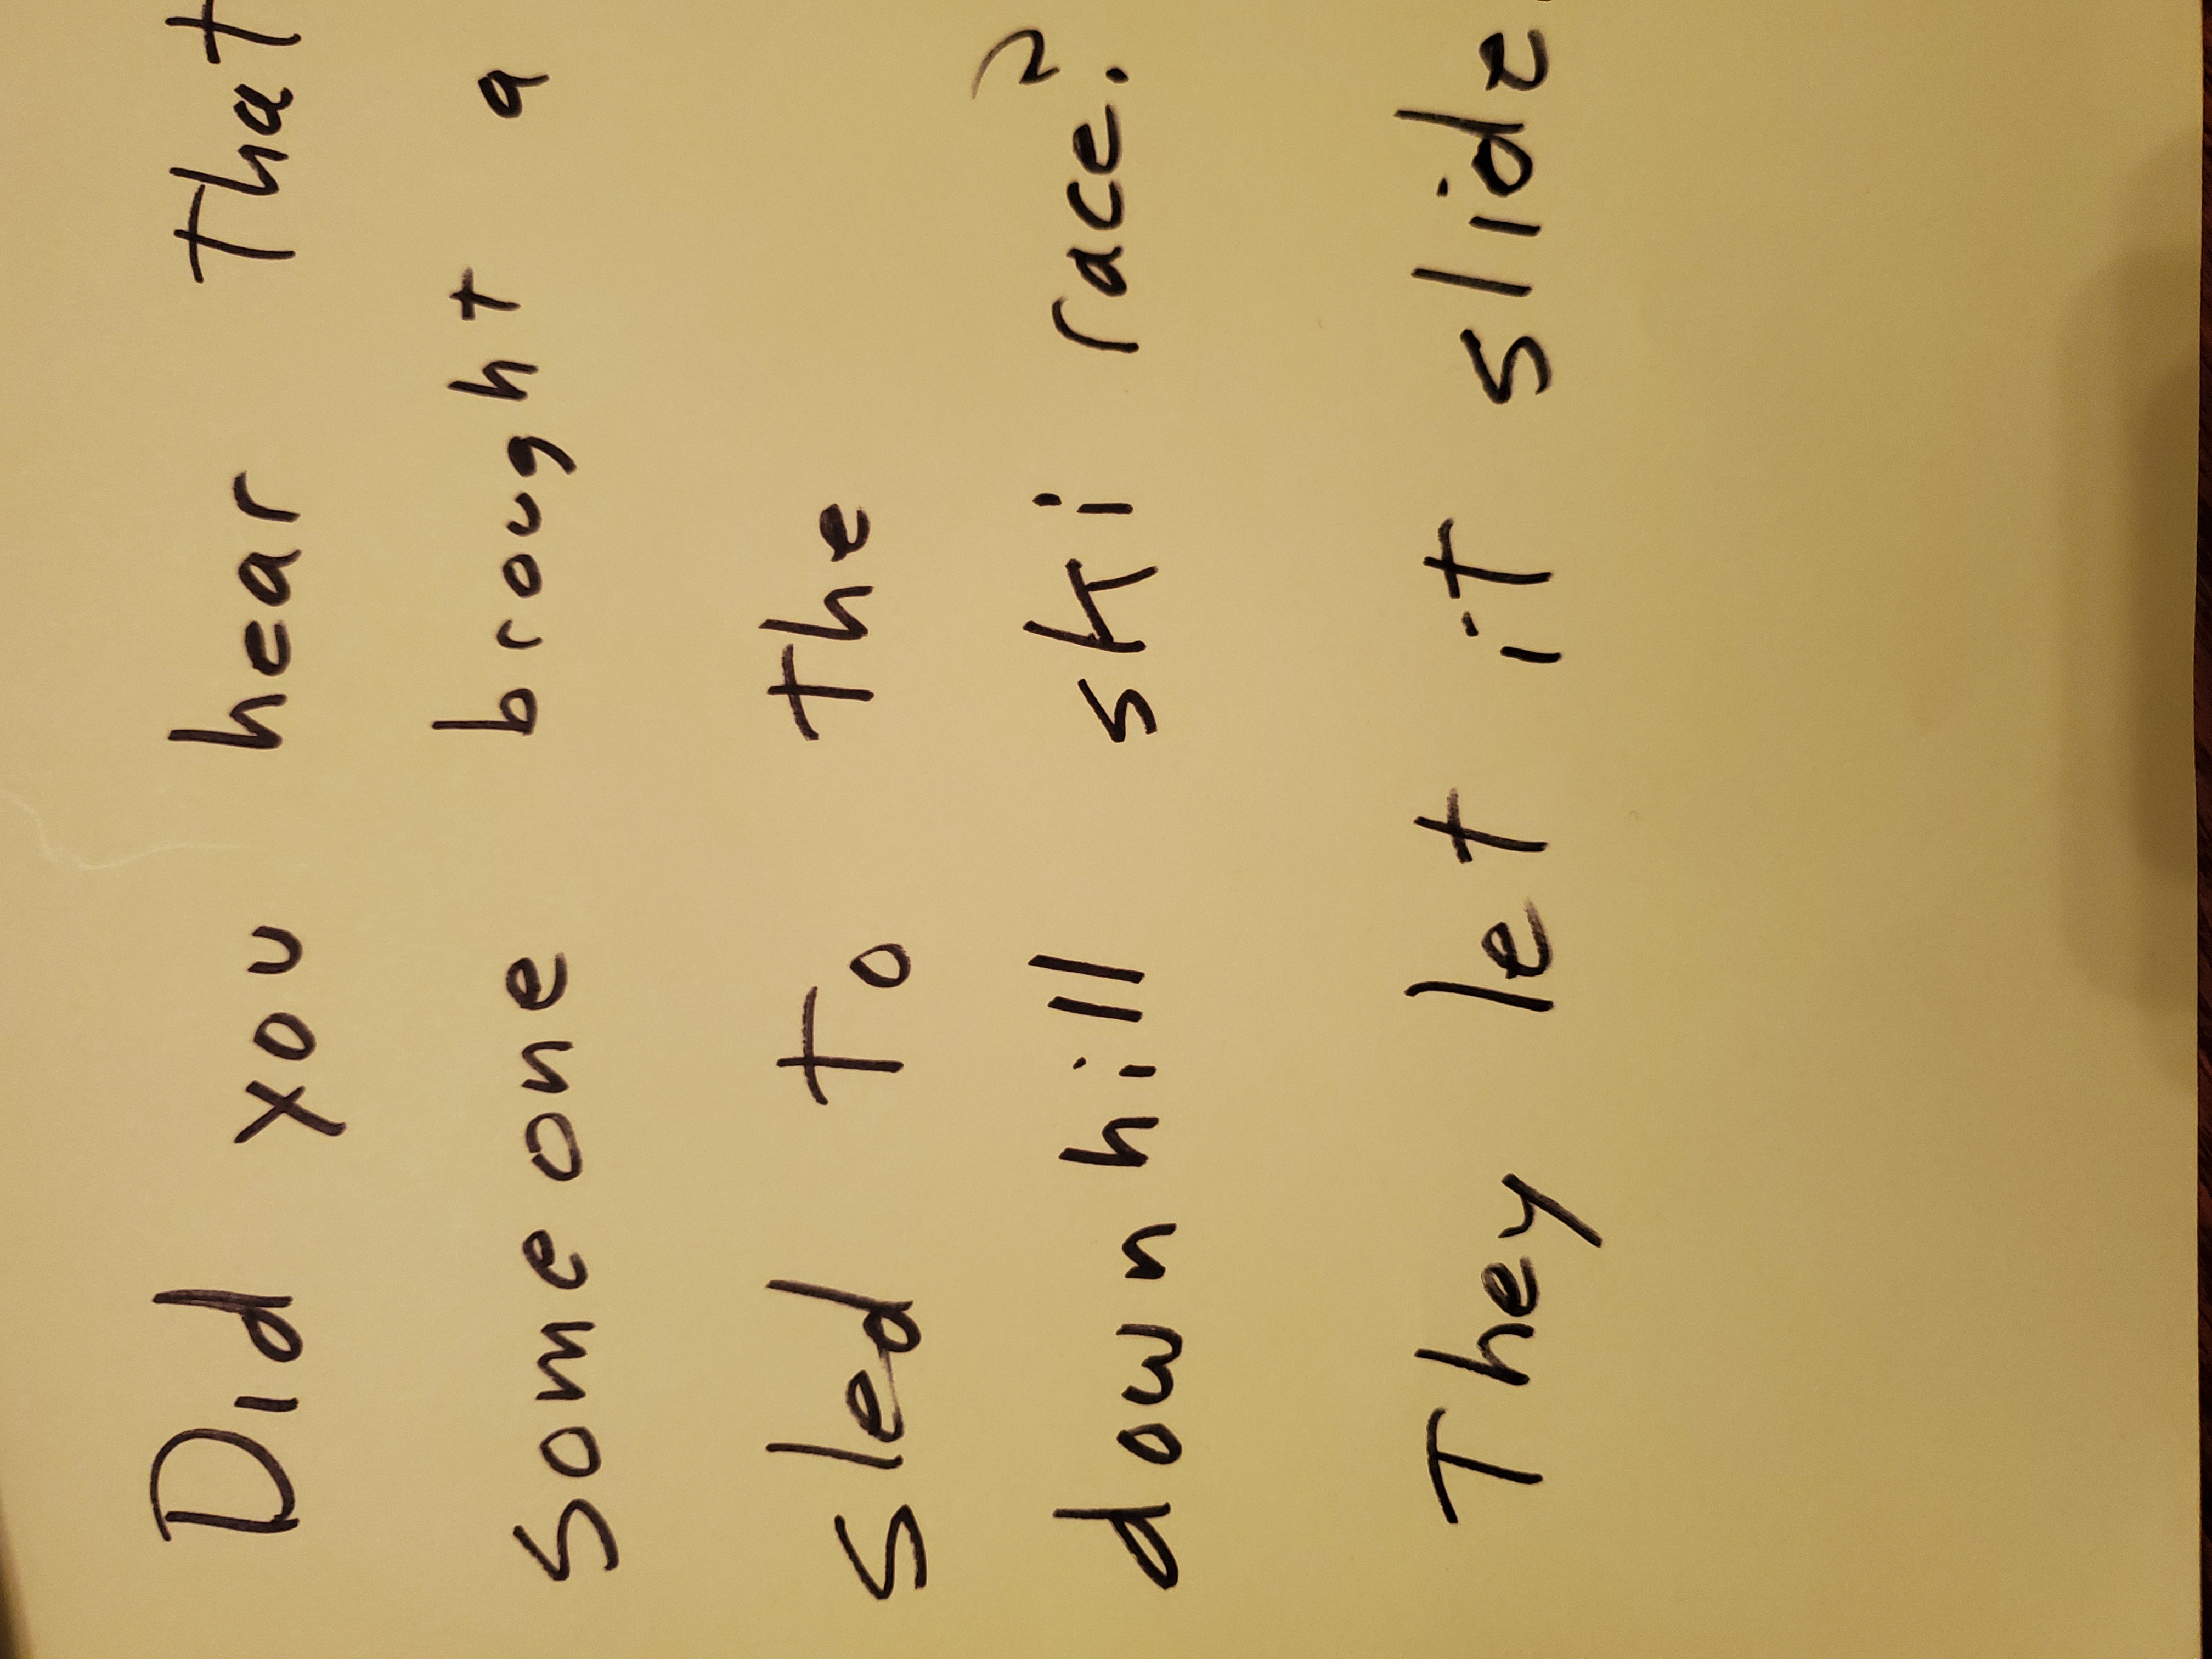 Did you hear that
someone brought a
sled to the
downhill ski race?
They let it slide.